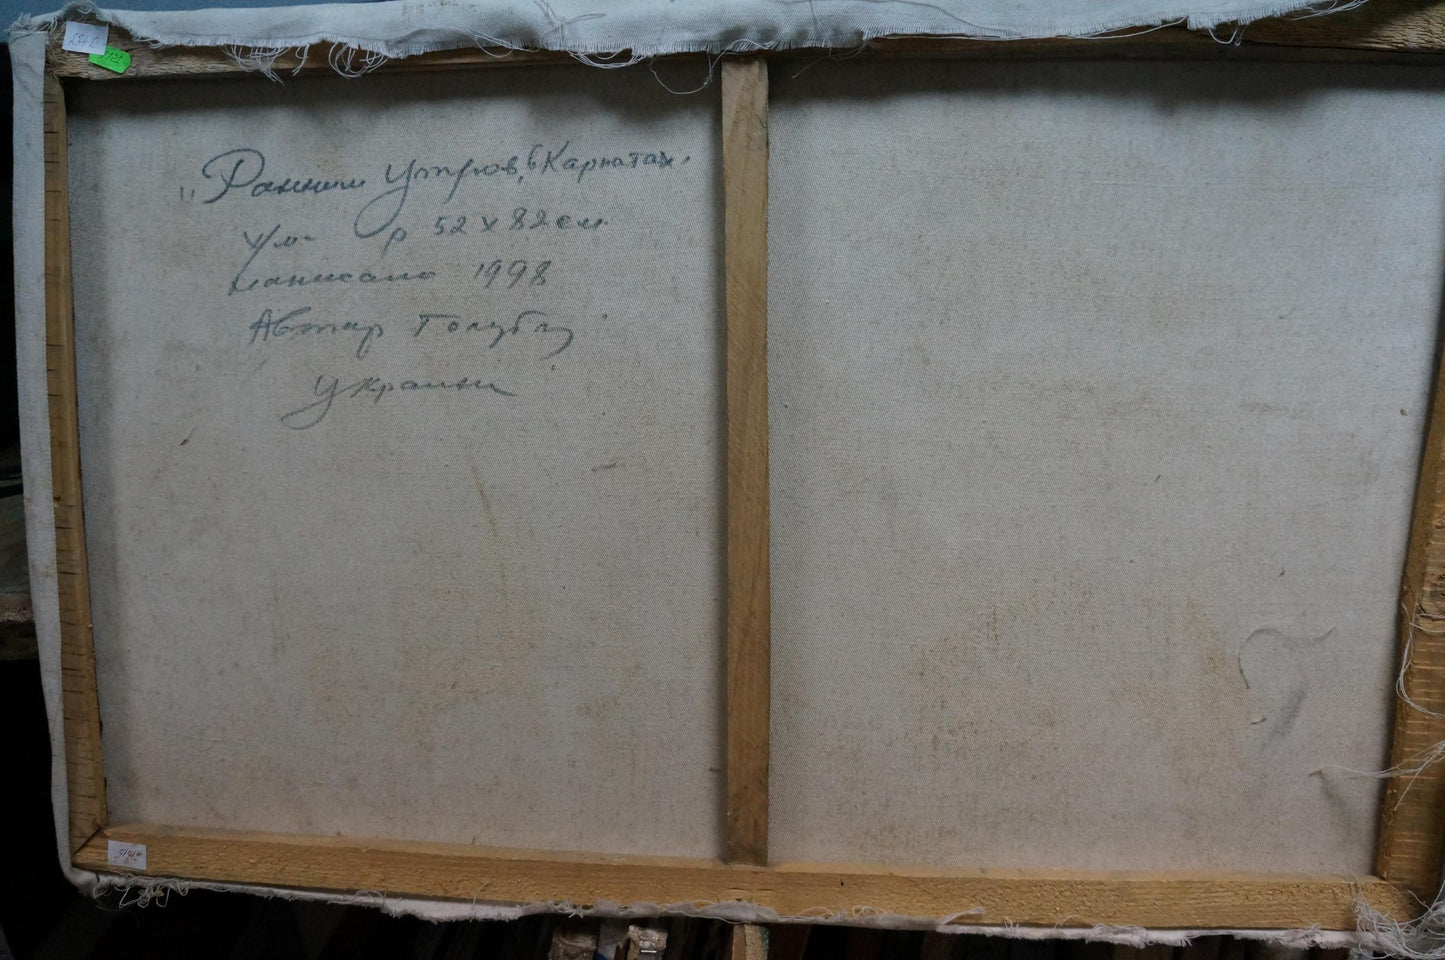 "Ранним утром, в Карпатах.
х/м. р 52 х 82 см
написано 1998
Автор Голуб
Украина